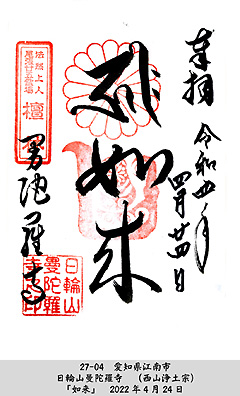 奉拝
令和四年
四月廿四日
如来
曼陀羅寺
法然上人
檀
日輪山
曼陀羅
寺之印
27-04　愛知県江南市
日輪山曼陀羅寺　（西山浄土宗）
「如来」　2022年4月24日